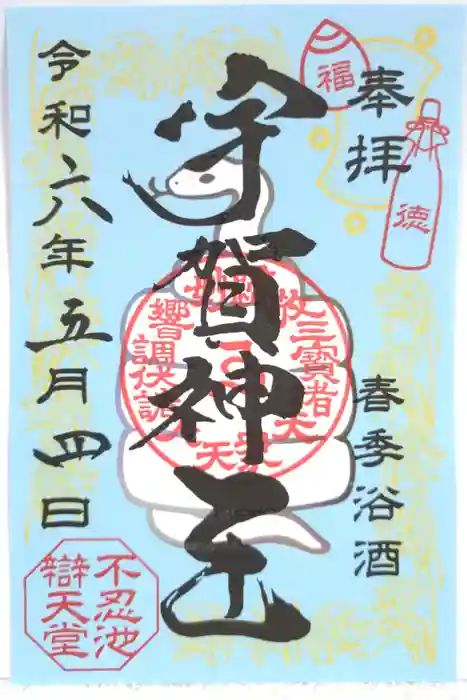 奉拝
福
徳
春季浴酒
宇賀神王
三寶者
天
響調伏
令和六年五月四日
不忍池
辯天堂